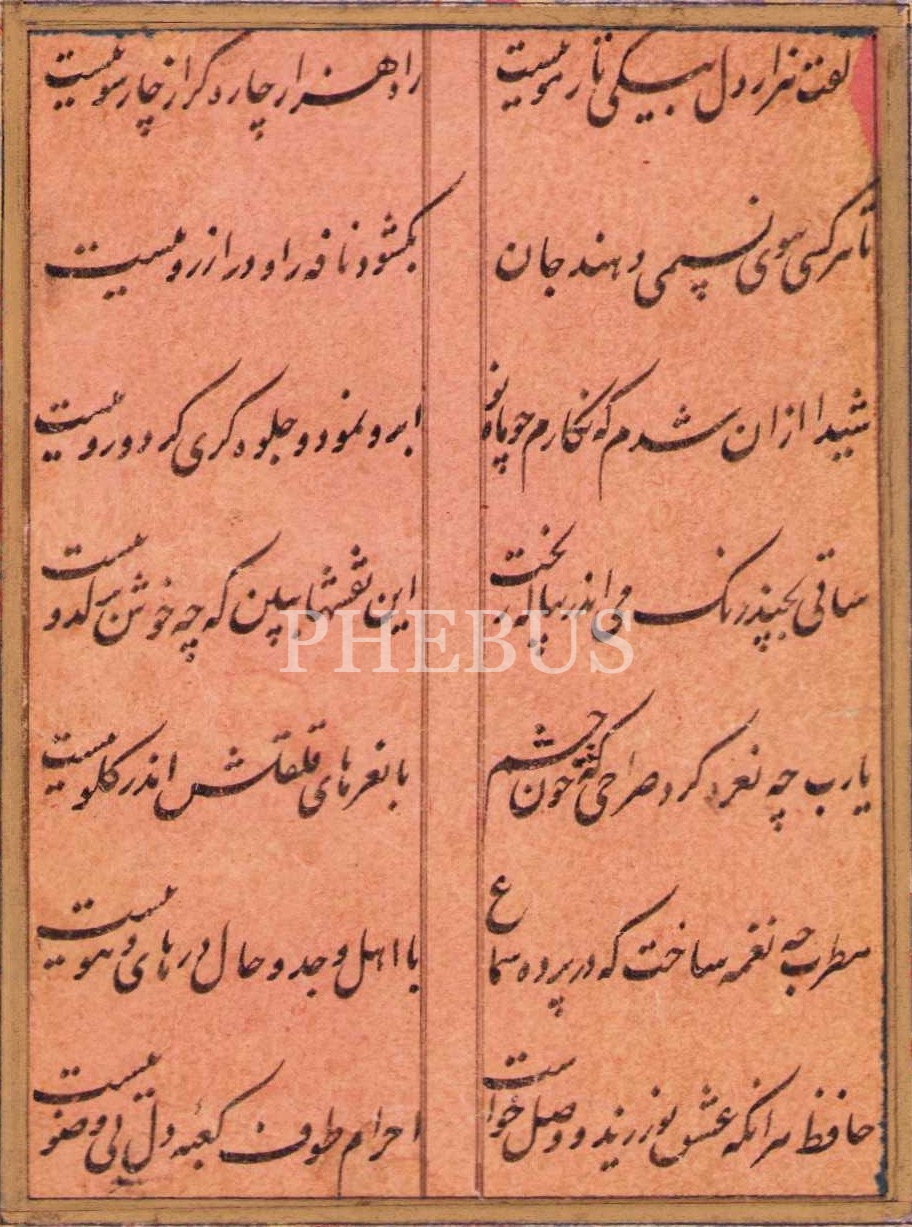 لفت هزار دل بیکی تار مو بست راه هزار چاره کر از چار سو بست
تا هر کسی بوی نسیمی دهند جان بکشود نافه را و در ارزو بست
شیدا ازان شدم که نکارم چو ماه نو ابرو نمود و جلوه کری کرد و رو بست
ساقی بچند رنک می اندر پیاله ریخت این نقشها ببین که چه خوش در کدو بست
یارب چه نعره کرد صراحی که خون با نعرهای قلقلش اندر کلو بست
مطرب چه نغمه ساخت که در پرده سماع با اهل وجد و حال در های و هو بست
حافظ هر انکه عشق نورزید و وصل خواست احرام طوف کعبه دل بی وضو بست
PHEBUS